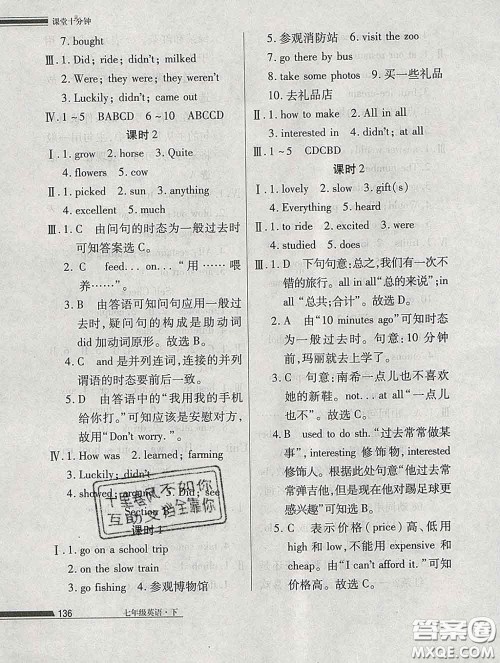 课堂十分钟
7. bought
Ⅲ. 1. Did; ride; didn't; milked
2. Were; they; were; they; weren't
3. Luckily; didn't; came out
Ⅳ. 1~5 BABCD 6~10 ABCCD
课时2
Ⅰ. 1. grow 2. horse 3. Quite
4. flowers 5. cow
Ⅱ. 1. picked 2. sun 3. anything
4. excellent 5. much
Ⅲ. 1. C 由问句的时态为一般过去时
可知答案选C。
2. C feed...on...“用……喂
养……”。
3. B 由答语可知问句应用一般过
去时,疑问句的构成是助动词
did加动词原形。故选B。
4. C and是并列连词,连接的并列
谓语的时态要前后一致。
5. B 由答语中的“我用我的手机
给你打。”可知应该是安慰对方,
故用“Don't worry.”。
Ⅳ. 1. How was 2. learned; farming
3. Luckily; didn't
4. showed; around 5. Did; see
Section B
课时1
Ⅰ. 1. go on a school trip
2. on the slow train
3. go fishing 4. 参观博物馆
5. 参观消防站 6. visit the zoo
7. go there by bus
8. take some photos 9. 买一些礼品
10. 去礼品店
Ⅱ. 1. how to make 2. All in all
3. interested in 4. didn't; at all
Ⅲ. 1~5 CDCBD
课时2
Ⅰ. 1. lovely 2. slow 3. gift(s)
4. Everything 5. heard
Ⅱ. 1. were 2. did 3. mice
4. studied 5. does
Ⅲ. 1. D 下句句意:总之,我们有一次不
错的旅行。all in all“总的来说”;in
all“总共;合计”。故选D。
2. A 由“10 minutes ago”可知时态
为一般过去时。句意:10分钟
前,玛丽就去上学了。
3. C 句意:南希一点儿也不喜欢
她的新鞋。not...at all“一点儿
也不”。故选C。
4. B used to do sth.“过去常常做某
事”,interesting修饰物,interested
修饰人。根据此处句意“他过去常
常弹吉他,但现在对踢足球更
感兴趣”可知选B。
5. C 表示价格(price)高、低,用
high/low;expensive表示“昂贵
的”,cheap表示“便宜的”。由句意可
知价格高。故选C。
136
七年级英语·下
十里春风不如你
互助文档全靠你
答案圈
MXQE.COM